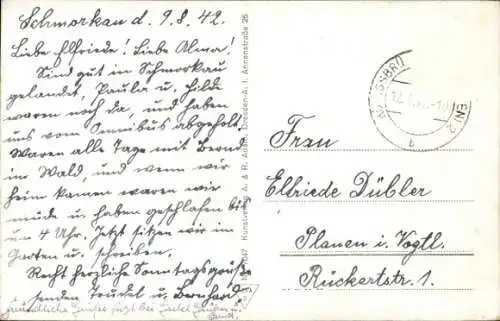 Schmorkau d. 9.8.42.
Liebe Elfriede! Liebe Alma!
Sind gut in Schmorkau
gelandet, Paula u. Hilde
waren noch da, und haben
uns vom Omnibus abgeholt,
Waren alle Tage mit Bernd
im Wald, und wenn wir
heim kamen waren wir
müde u. haben geschlafen bis
um 4 Uhr. Jetzt sitzen wir im
Garten u. schreiben.
Recht herzliche Sonntagsgrüße
senden Trudel u. Bernhard.
Kunstverlag A. & R. Adam, Dresden-A. 1, Annenstraße 26
KÖNIGSBRÜ
12.
-10
b
Frau
Elfriede Dübler
Plauen i. Vogtl.
Rückertstr. 1.